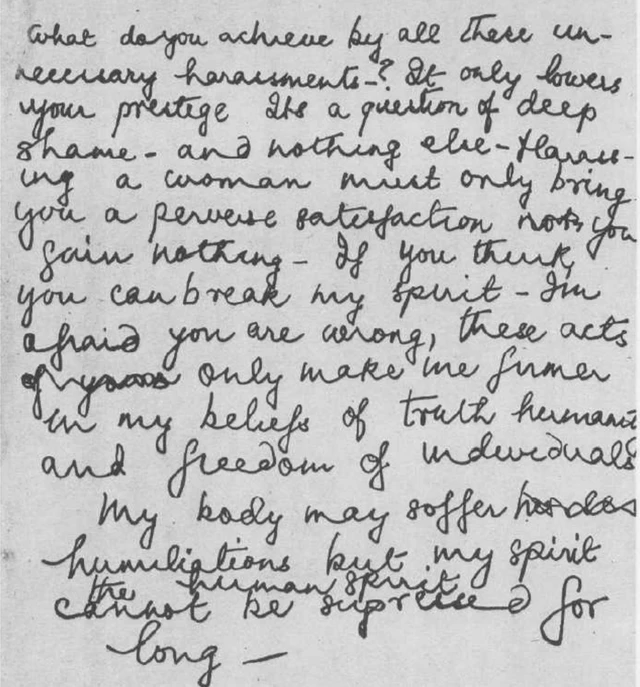 What do you achieve by all these un-
necessary harassments-? It only lowers
your prestige Its a question of deep
shame - and nothing else - Harass-
ing a woman must only bring
you a perverse satisfaction you
gain nothing - If you think
you can break my spirit - I'm
afraid you are wrong, these acts
of yours only make me firmer
in my beliefs of truth humani
and freedom of individuals
My body may soffer
humiliations but my spirit
the human spirit
cannot be supressed for
long -